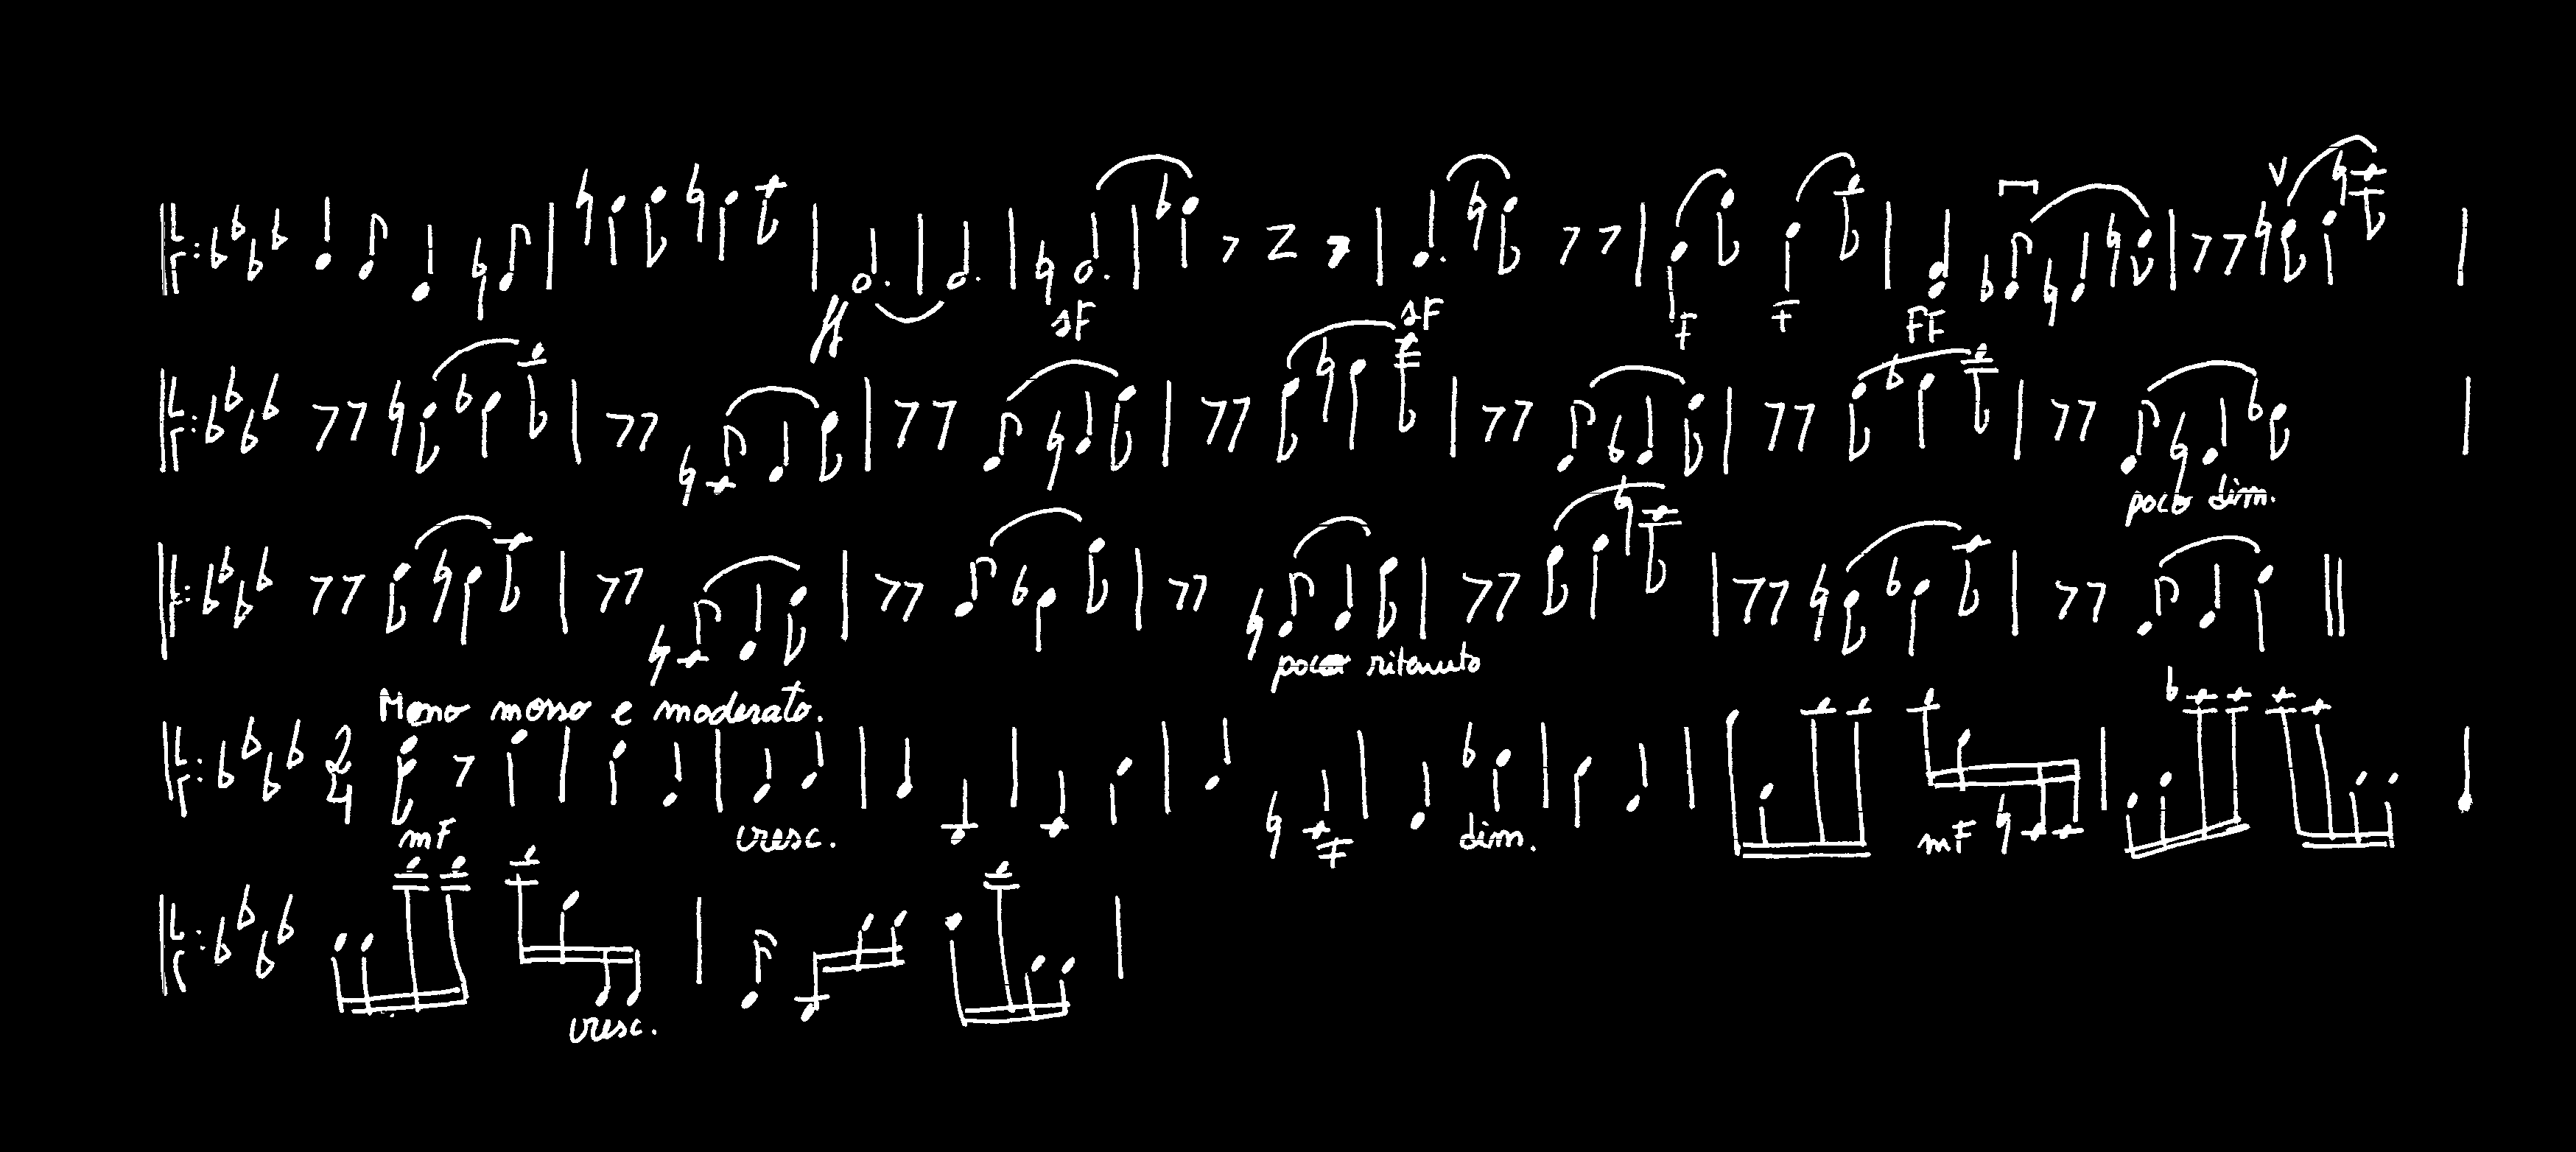 ff sF sF F F FF
poco dim.
poco ritenuto
Meno mosso e moderato.
2
4
mF cresc. F dim. mF
cresc.